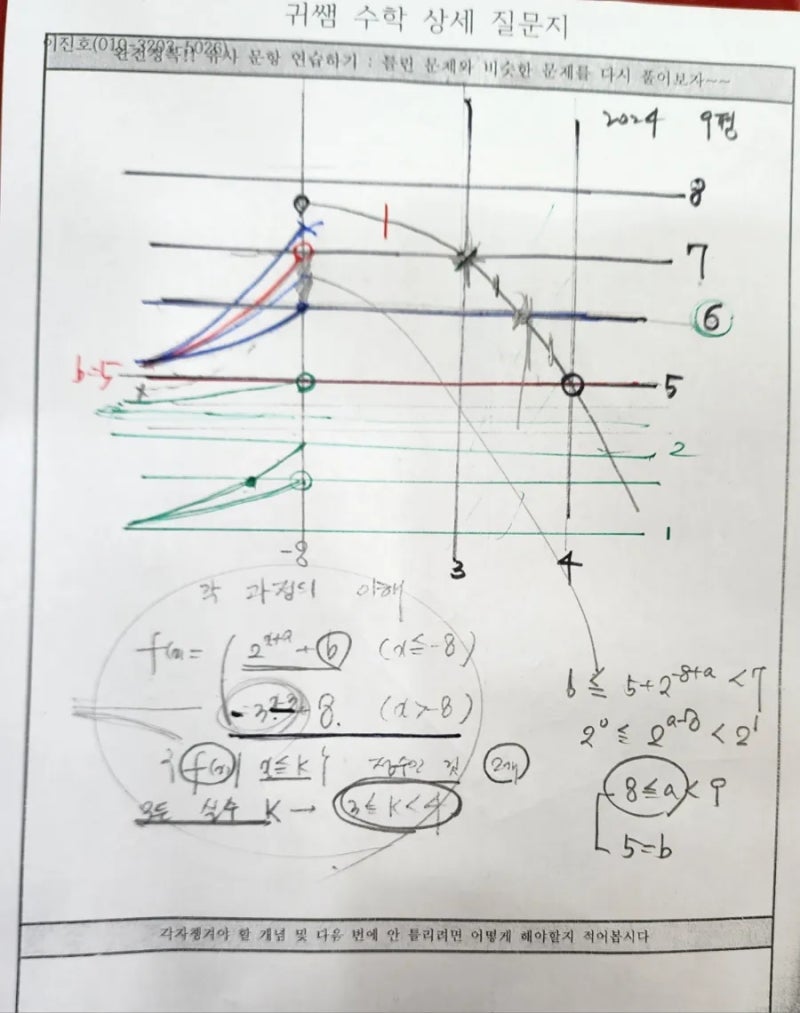 귀쌤 수학 상세 질문지
이진호(010-3203-5026)
완전정복!! 유사 문항 연습하기 : 틀린 문제와 비슷한 문제를 다시 풀어보자~~
2024 9평
8
1
7
6
b=5
5
2
1
-8
3
4
각 과정의 이해
f(x)= 2^{x+a} + b (x≤-8)
-3^{x-3}+8. (x>-8)
{f(x)| x≤K} 정수인 것 2개
모든 실수 K → 3≤K<4
6 ≤ 5+2^{-8+a} < 7
2^0 ≤ 2^{a-8} < 2^1
8≤a<9
5=b
각자챙겨야 할 개념 및 다음 번에 안 틀리려면 어떻게 해야할지 적어봅시다